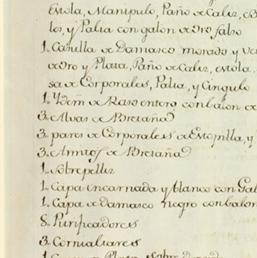 Estola, Manipulo, Paño de Caliz, B
los, y Palia con galon de Oro falso
1. Casulla de Damasco morado y ve
de Oro y Plata, Paño de Caliz, estola
sa de Corporales, Palia, y Cingulo
1. Ydem de Raso entero con Galon de
3. Alvas de Bretaña
3. pares de Corporales de Estopilla, y
3. Amitos de Bretaña
1. Sobrepelliz
1. Capa encarnada y blanco con Gal
1. Capa de Damasco negro con Galon
8. Purificadores
3. Cornualtares